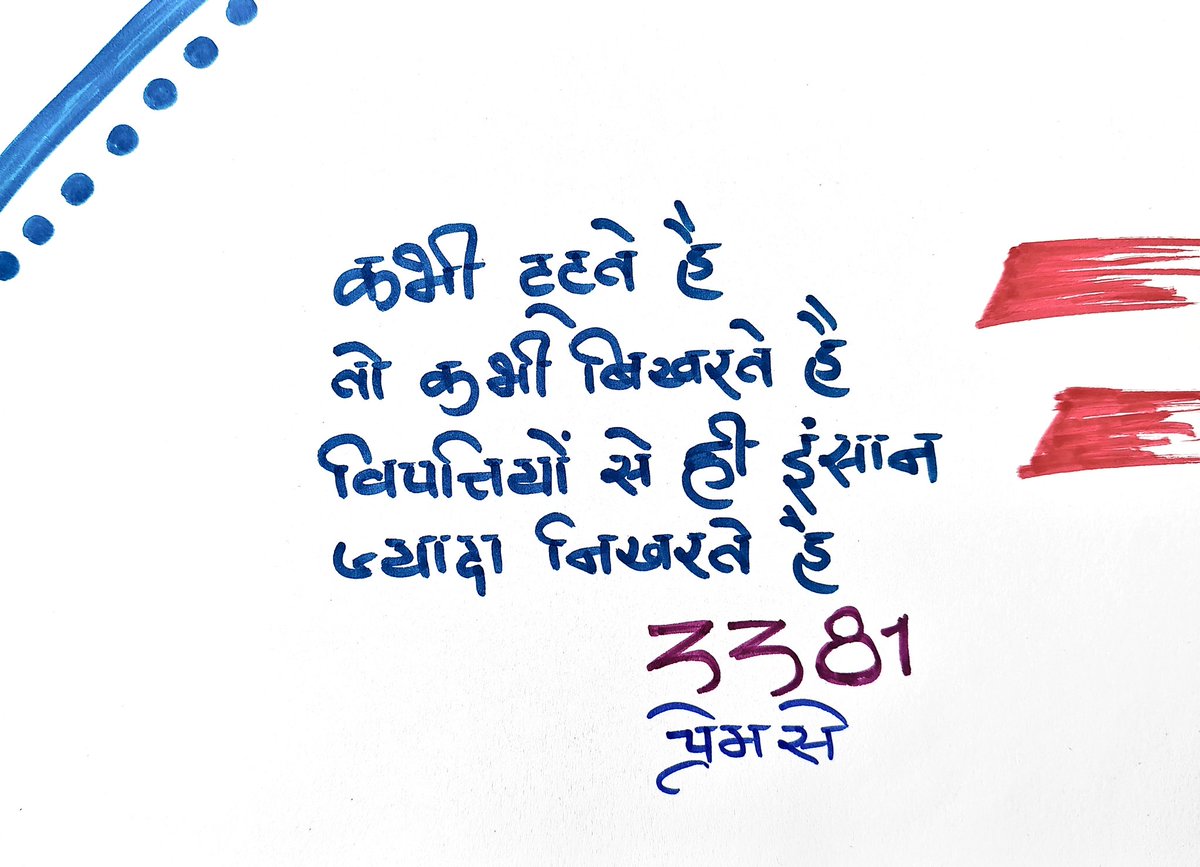 कभी टटते है
तो कभी बिखरते है
विपत्तियों से ही इंसान
ज्यादा निखरते है
3381
प्रेम से